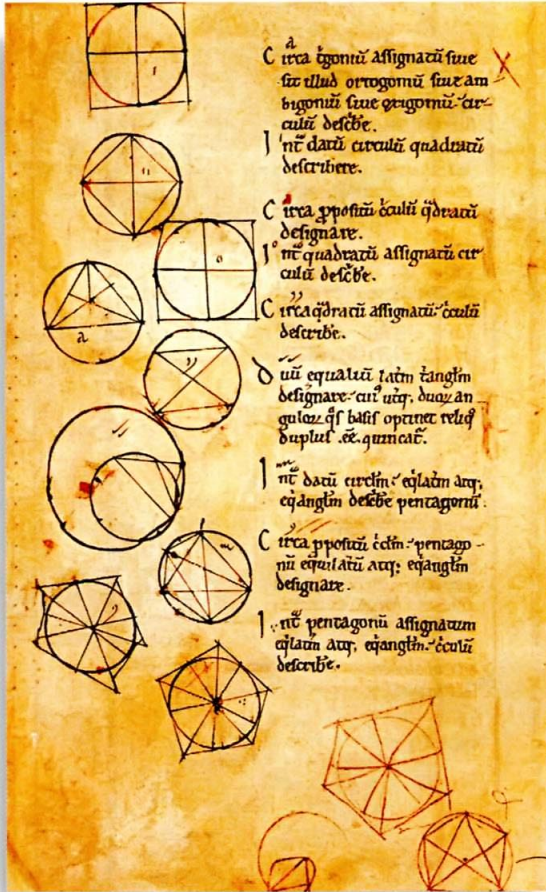 Circa t̾goniū assignatū siue
sit illud ortogoniū siue am
bigoniū siue oxigoniū cir-
culū desc̾be.
Int᷎ datū circulū quadratū
describere.
Circa p̱positū c̾culū q̾dratū
designare.
Int᷎ quadratū assignatū cir
culū desc̾be.
Circa q̾dratū assignatū c̾culū
describ̾e.
duū equaliū lat̾m t̾angl̾m
designare cui᷒ ut̾q; duoꝝ an
guloꝝ q̊s basis optinet reliq̾
duplus .ēē. ꝯuincat̾.
Int᷎ datū circl̾m eq̾lat̾m atq;
eq̾angl̾m desc̾be pentagonū.
Circa p̱positū c̾cl̾m pentago-
nū equilat̾ū atq; eq̾angl̾m
designare.
Int᷎ pentagonū assignatum
eq̾lat̾m atq; eq̾angl̾m c̾culū
describ̾e.